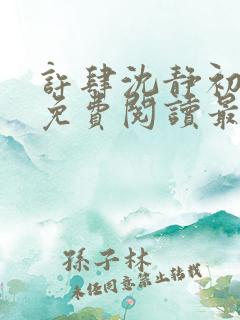 許肆沈靜初
免費閱讀最
孫子林
未經同意禁止轉載